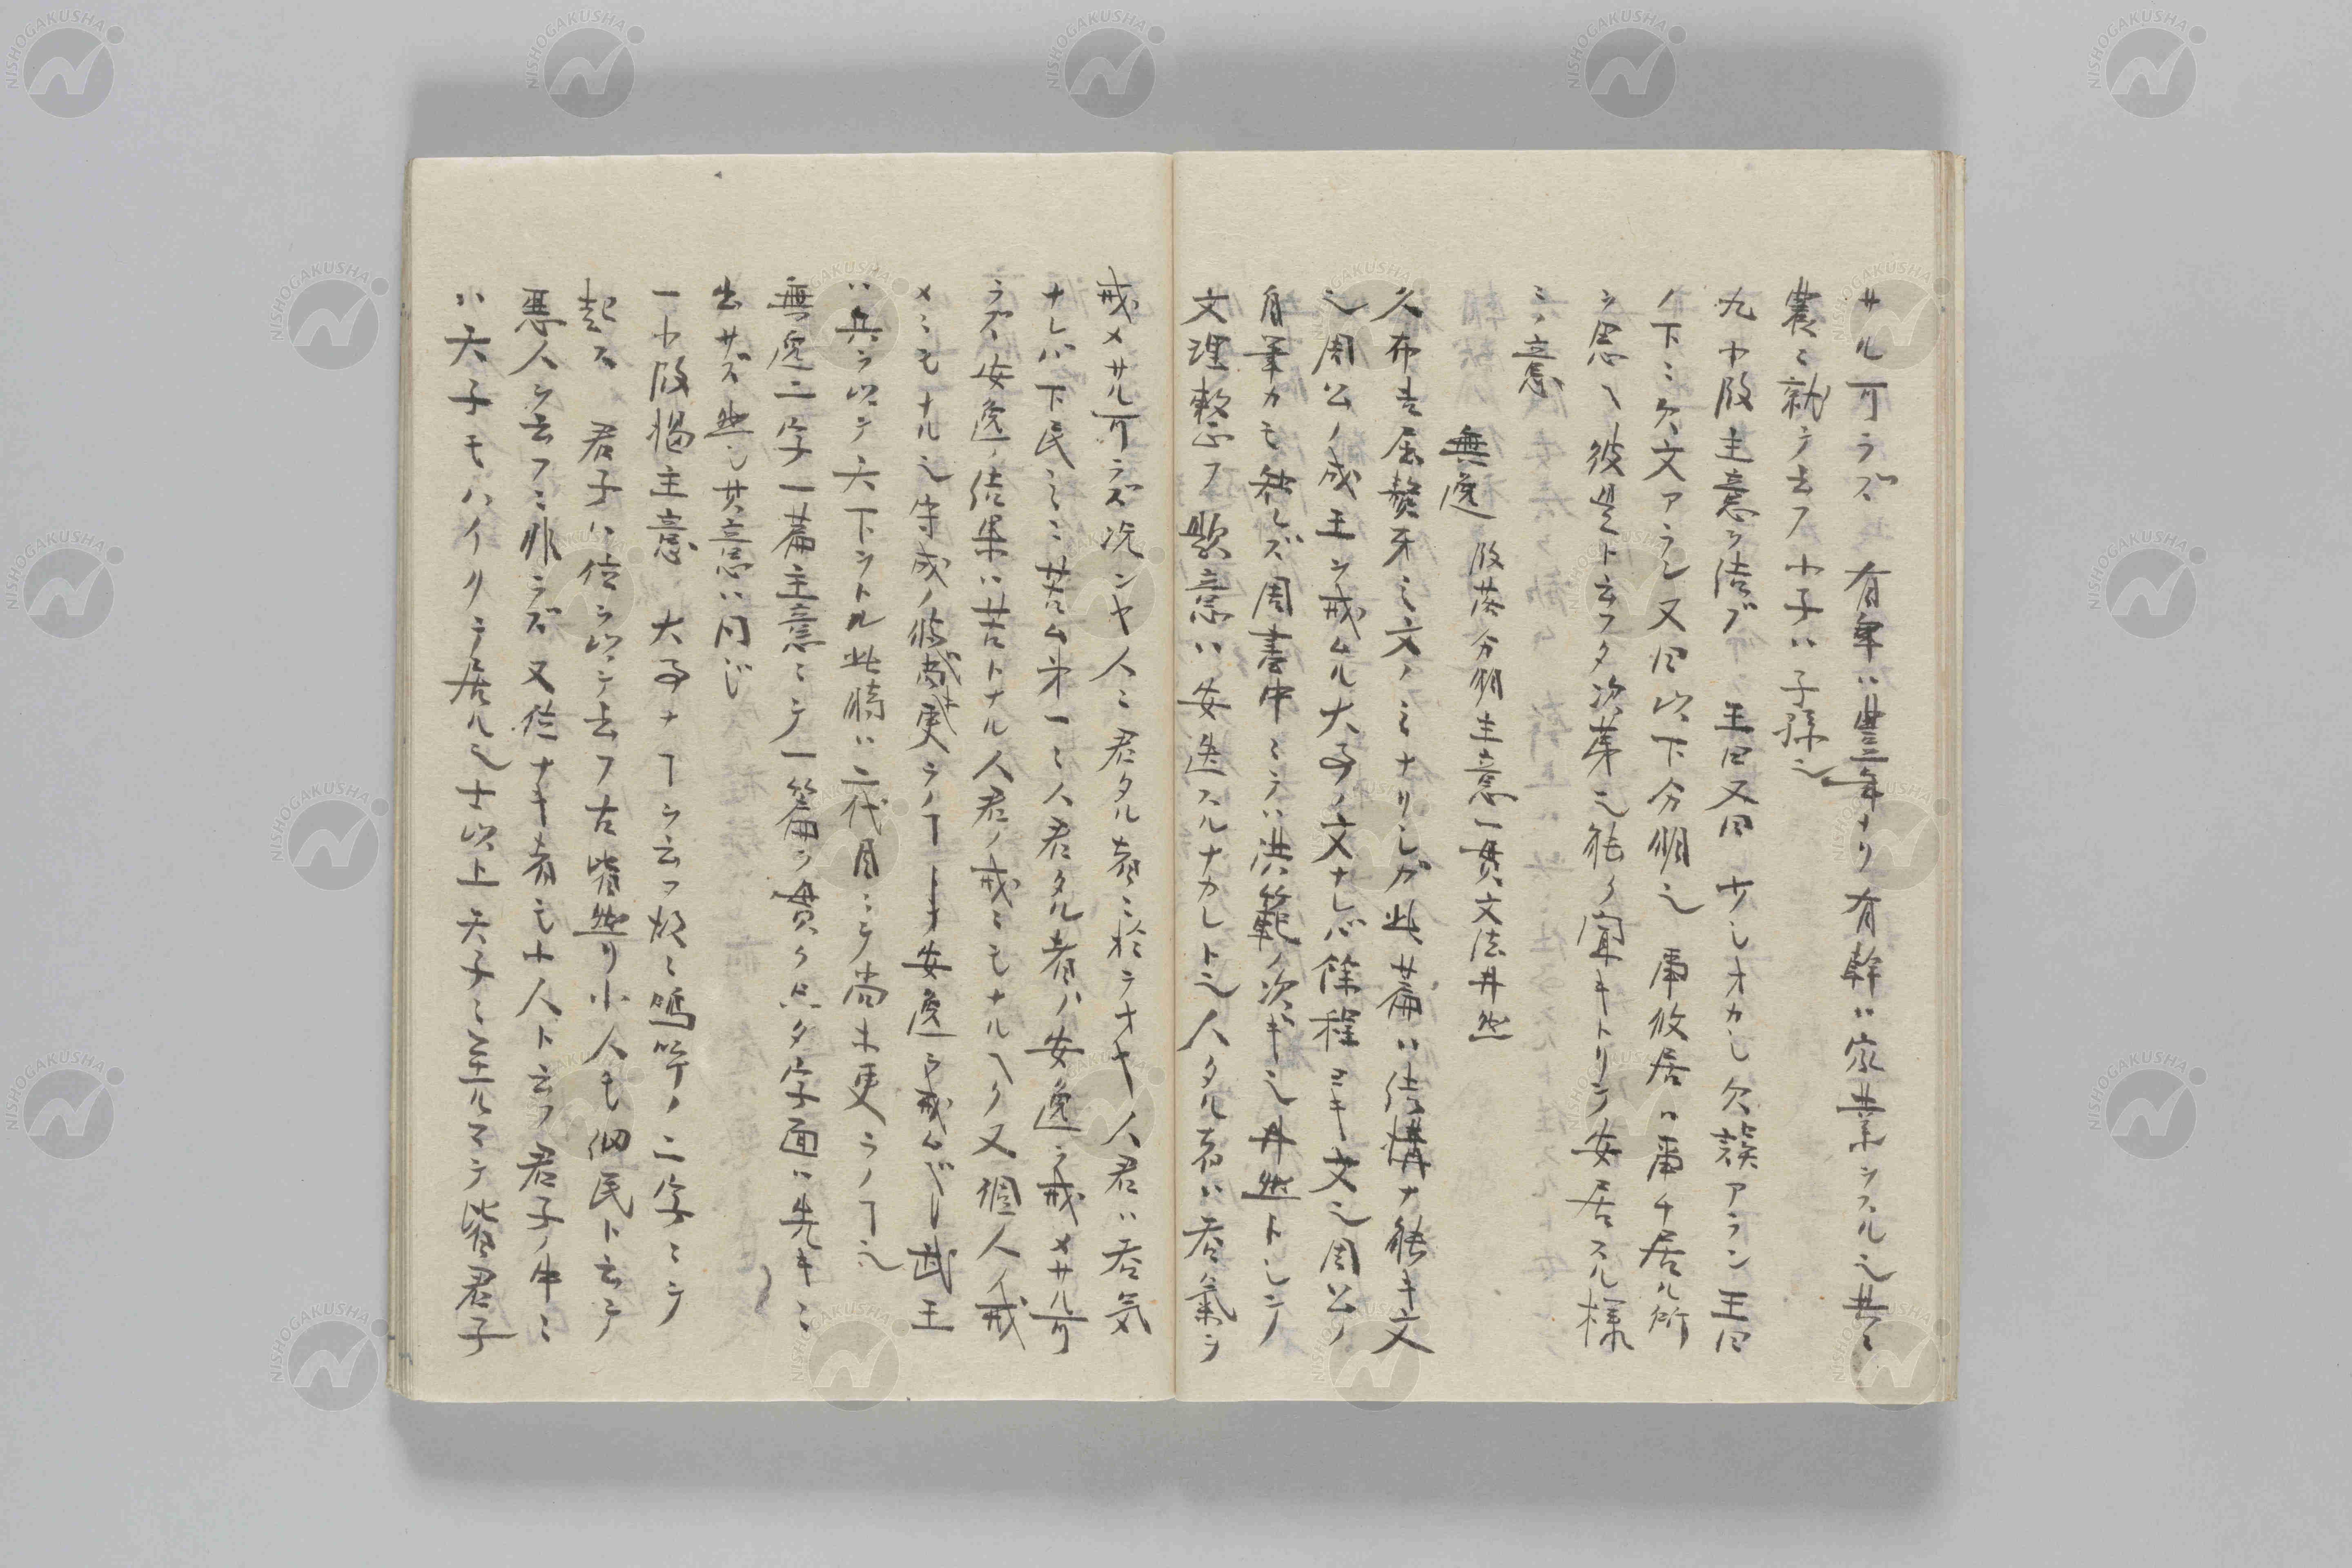 サル可ラズ 有年ハ豊年ナリ有幹ハ家業ヲスル也共ニ
農ニ就テ云フ小子ハ子孫也
九小段主意ヲ結ブ 王曰又曰 少シオカシ欠誤アラン王曰
ノ下ニ欠文アラン又曰以下分明也 爾攸居ハ爾ヂ居ル所
ヲ思ヘ彼是ト云フタ次第也能ク聞キトリテ安居スル様
ニノ意
無逸 段落分明主意一貫文法井然
久布吉屈贅牙之文ノミナリシガ此篇ハ結構ナ能キ文
也周公ノ成王ヲ戒ムル大事ノ文ナレバ餘程ヨキ文也周公ノ
自筆カモ知レズ周書中ニテハ洪範ノ次ギ也井然トシテ
文理整フ 題意ハ安逸スルナカレト也人タル者ハ呑氣ヲ
戒メサル可ラズ況ンヤ人ニ君タル者ニ於テオヤ人君ハ呑気
ナレバ下民ミニ苦ム第一ニ人君タル者ハ安逸ヲ戒メサル可
ラズ 安逸ノ結果ハ苦トナル人君ノ戒ニモナルヘク又個人ノ戒
メニモナル也守成ノ後尚更ラノ丁ナリ安逸ヲ戒ムベシ武王
ハ兵ヲ以テ天下ヲトル此時ハ二代目ニテ尚ホ更ラノ丁也
無逸二字一篇主意ニテ一篇ヲ貫ク只タ字面ハ先キニ
出サズ 然シ其意ハ同じ
一小段掲主意 大事ナ丁ヲ云フ故ニ嗚呼ノ二字ニテ
起ス 君子ハ位ヲ以テ云フ古皆然リ小人モ細民ト云テ
悪人ヲ云フニ非ラズ 又位ナキ者モ大人ト云フ君子ノ中ニ
ハ天子モハイリテ居ル也士以上天子ニ至ルマテ皆君子